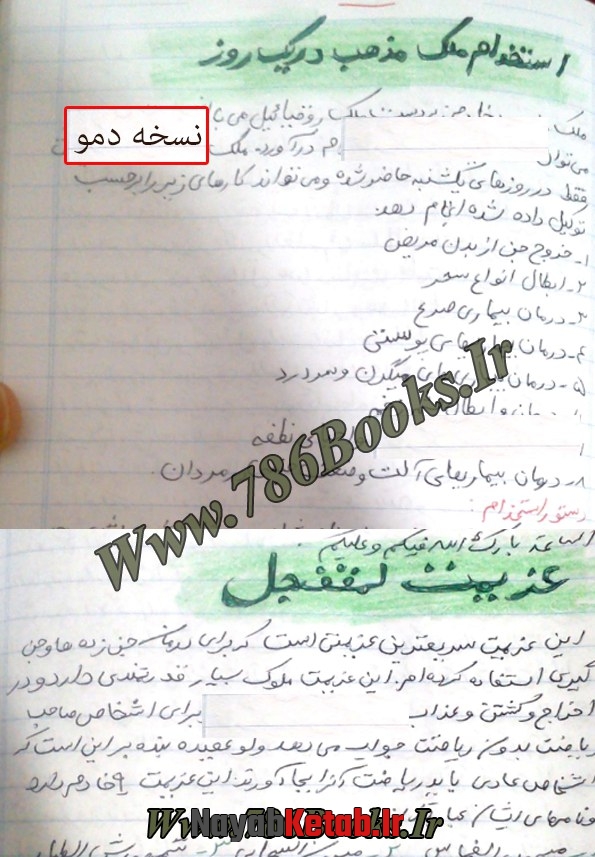 استخدام ملک مذهب در یک روز
ملک روفیائیل می با
نسخه دمو
می توان م در آورد ملک
فقط در روزهای یکشنبه حاضر شده و می تواند کارهای زیر را برحسب
توکیل داده شده انجام دهد:
۱- خروج جن از بدن مریض
۲- ابطال انواع سحر
۳- درمان بیماری صرع
۴- درمان بیماریهای پوستی
۵- درمان بیماری های میگرن و سردرد
درمان و ابطال
نطفه
۸- درمان بیماریهای آلت و مردان
دستور استخدام:
الساعه بارک الله فیکم و علیکم
عزیمت لمقفجل
این عزیمت سریعترین عزیمتی است که برای درمان جن زده ها و جن
گیری استفاده کرده ام. این عزیمت ملوک بسیار قدرتمندی دارد و در
اخراج و کشتن و عذاب برای اشخاص صاحب
ریاضت بدون ریاضت جواب می دهد ولو عقیده بنده بر این است که
اشخاص عادی باید ریاضت آنرا بجا آورند. این عزیمت ۹ خادم دارد
و نامهای ایشان
Www.786Books.Ir
Www.786Books.Ir
NayabKetab.Ir